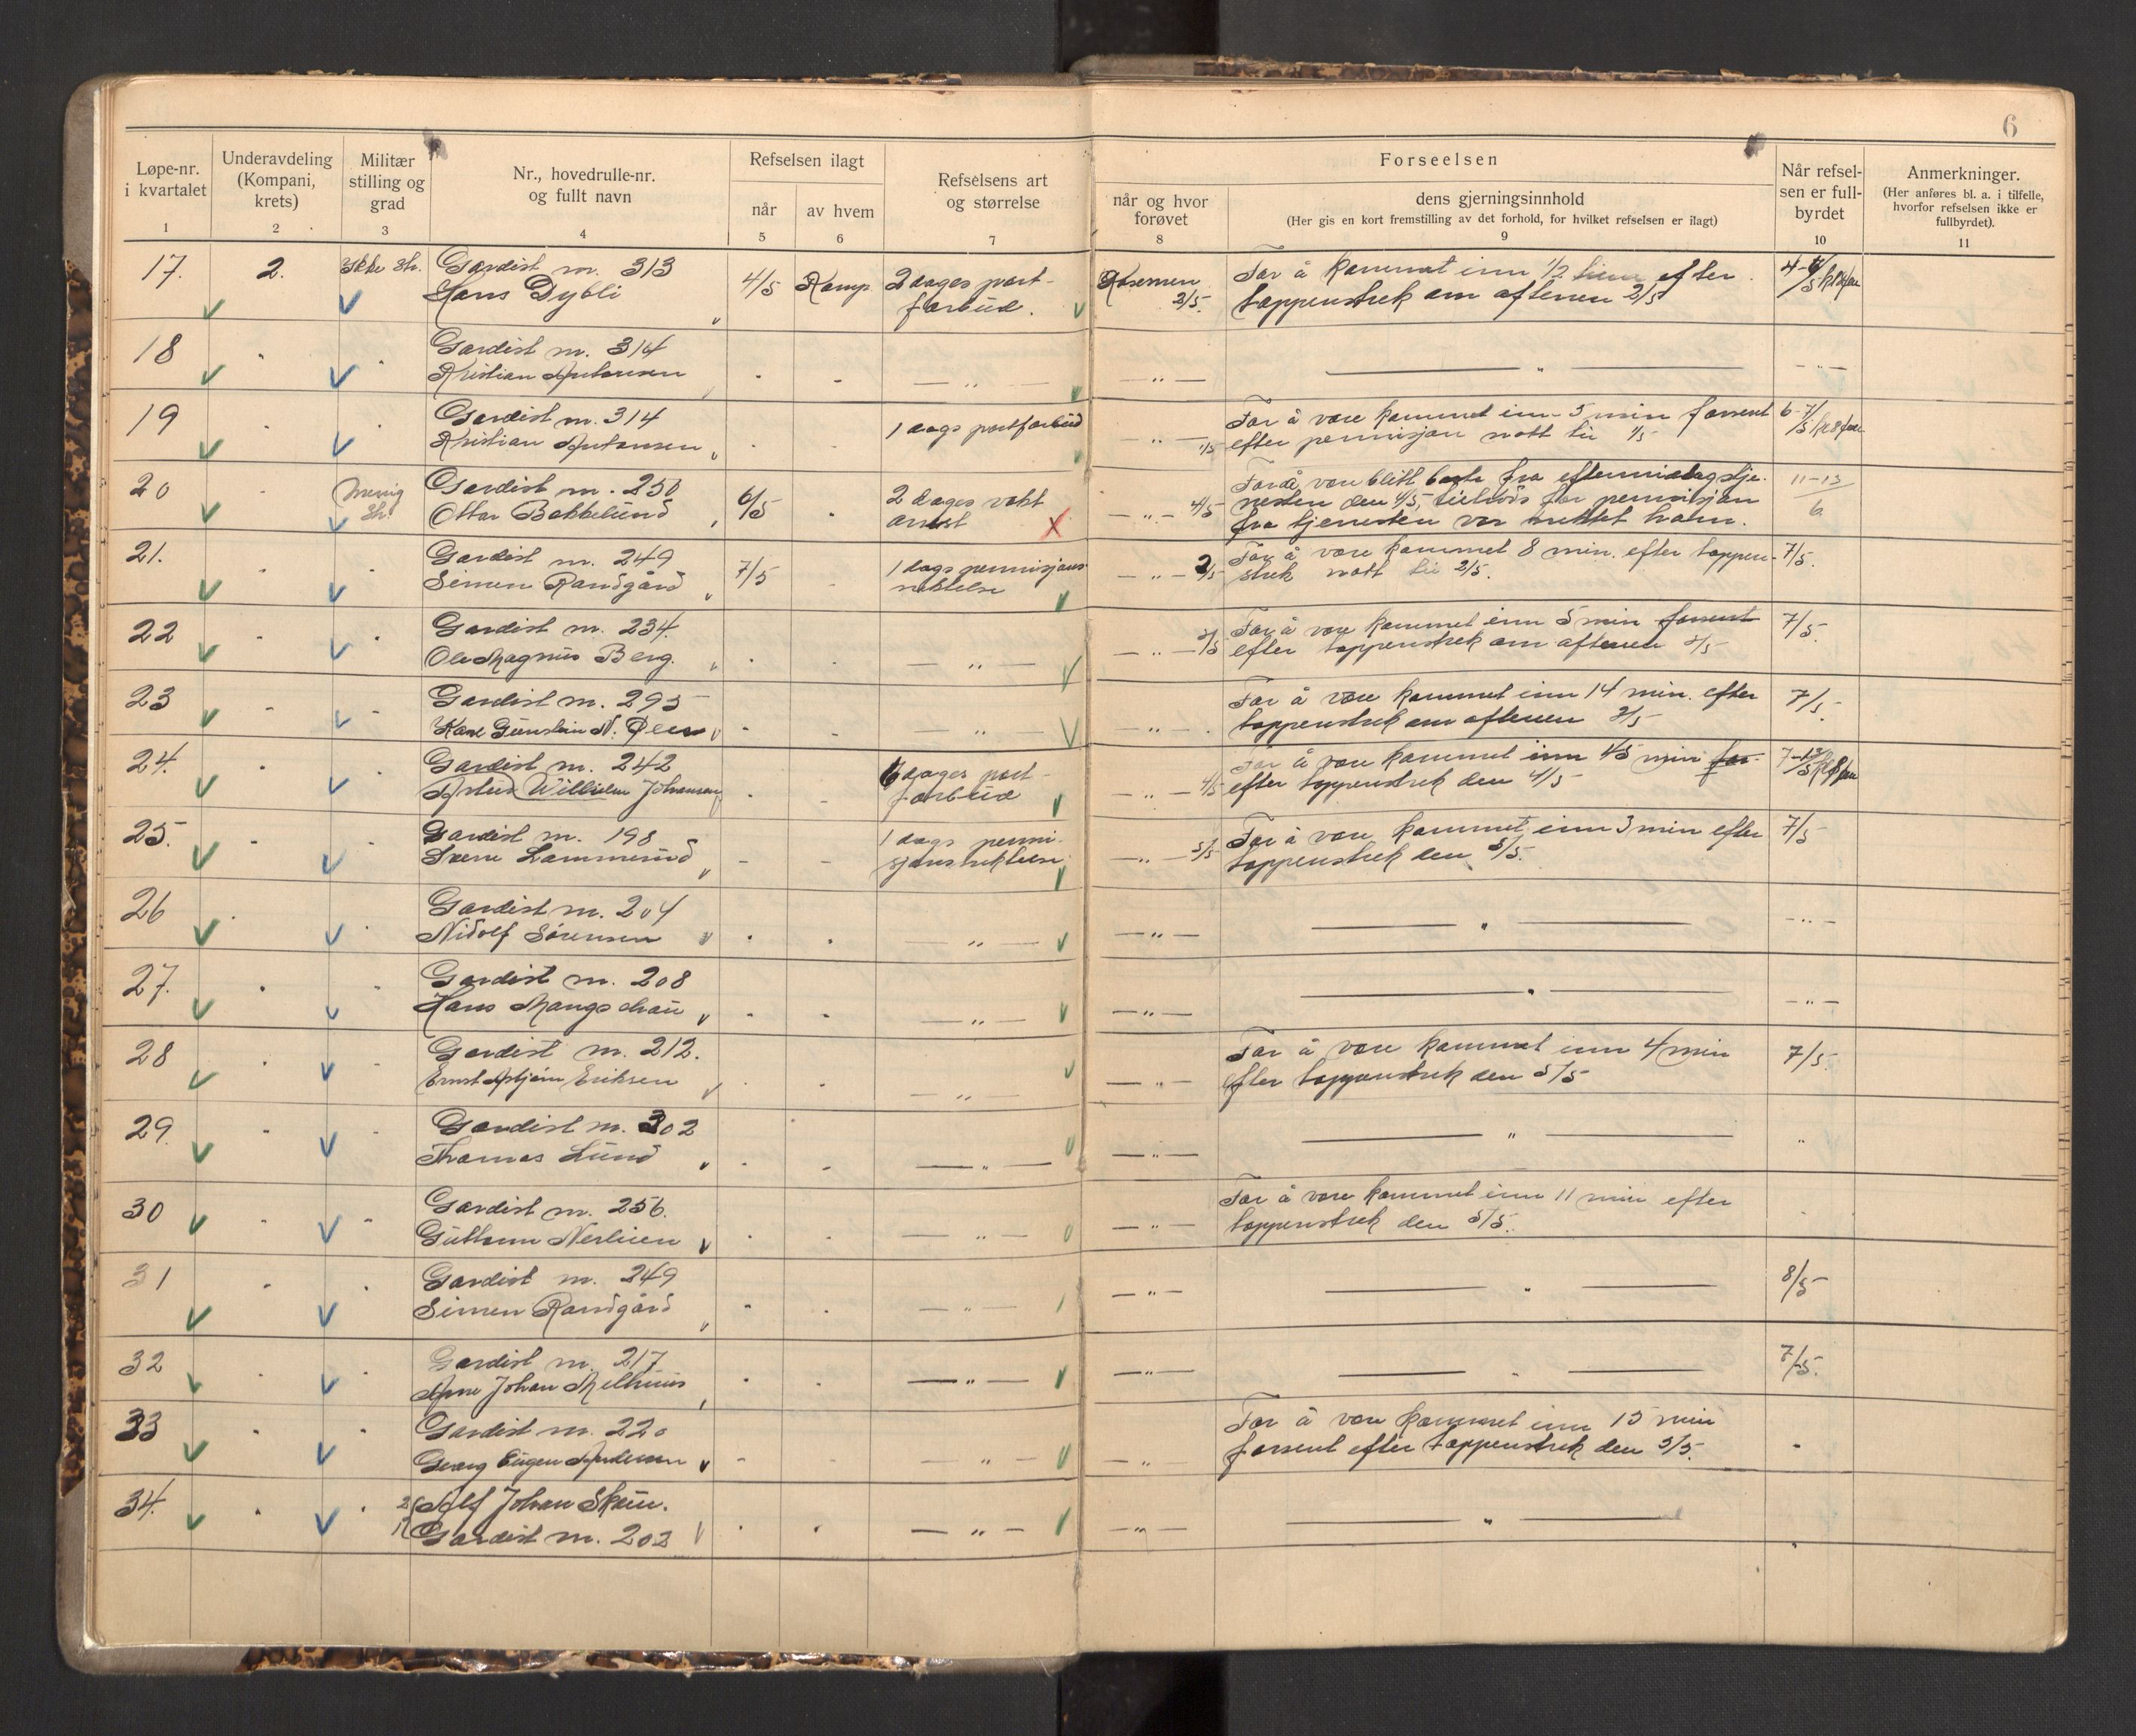 6
Løpe-nr. i kvartalet
Underavdeling (Kompani, krets)
Militær stilling og grad
Nr., hovedrulle-nr. og fullt navn
Refselsen ilagt
når
av hvem
Refselsens art og størrelse
Forseelsen
når og hvor forøvet
dens gjerningsinnhold
(Her gis en kort fremstilling av det forhold, for hvilket refselsen er ilagt)
Når refsel-
sen er full-
byrdet
Anmerkninger.
(Her anføres bl. a. i tilfelle,
hvorfor refselsen ikke er
fullbyrdet).
1 2 3 4 5 6 7 8 9 10 11
17. 2. Gardist nr. 313 4/5 Komp. 2 dages port- For å kommet inn 1/2 time efter
Hans Dybli forbud. 2/5. tappenstrek om aftenen 2/5
18 Gardist nr. 314
Kristian Antonsen — " — — " — — " — — " —
19 Gardist nr. 314 1 dags portforbud For å være kommet inn 5 min forsent
Kristian Antonsen — " — 1/5 efter permisjon natt til 1/5
20 Menig Gardist nr. 250 6/5 2 dages vakt For å være blitt borte fra eftermiddagstje- 11-13
Ottar Bakkelund arrest X — " — 4/5 nesten den 4/5, tiltross for permisjon 6
fra tjenesten var nektet ham.
21. Gardist nr. 249 7/5 1 dags permisjons- For å være kommet 8 min. efter tappen- 7/5.
Simen Randgård nektelse — " — 2/5 strek natt til 2/5.
22 Gardist nr. 234. For å være kommet inn 5 min forsent 7/5.
Ole Magnus Berg. — " — — " — efter tappenstrek om aftenen
23 Gardist nr. 295 For å være kommet inn 14 min. efter 7/5.
— " — — " — tappenstrek om aftenen
24. Gardist nr. 242 dages port- For å være kommet inn 45 min for-
Wilhelm Johansen forbud — " — 4/5 efter tappenstrek den 4/5
25. Gardist nr. 198 1 dags permi- For å være kommet inn 3 min efter 7/5
Lammerud sjonsnektelse — " — 5/5 tappenstrek den 5/5.
26 Gardist nr. 204
Nidolf Sørensen — " — — " — — " — — " —
27. Gardist nr. 208
Hans — " — — " — — " — — " —
28 Gardist nr. 212. For å være kommet inn 4 min 7/5.
Ernst Eriksen — " — — " — efter tappenstrek den 5/5
29. Gardist nr. 302
Thomas Lund — " — — " — — " — "
30 Gardist nr. 256. For å være kommet inn 11 min efter
Guttorm — " — — " — tappenstrek den 5/5.
31 Gardist nr. 249 8/5
Simen Randgård — " — — " — — " —
32 Gardist nr. 217 7/5.
Arne Johan Melhuus — " — — " — — " —
33 Gardist nr. 220 For å være kommet inn 15 min
Georg Eugen Andersen — " — — " forsent efter tappenstrek den 5/5.
34. Alf Johan
Gardist nr. 202 — " — — " — — " —